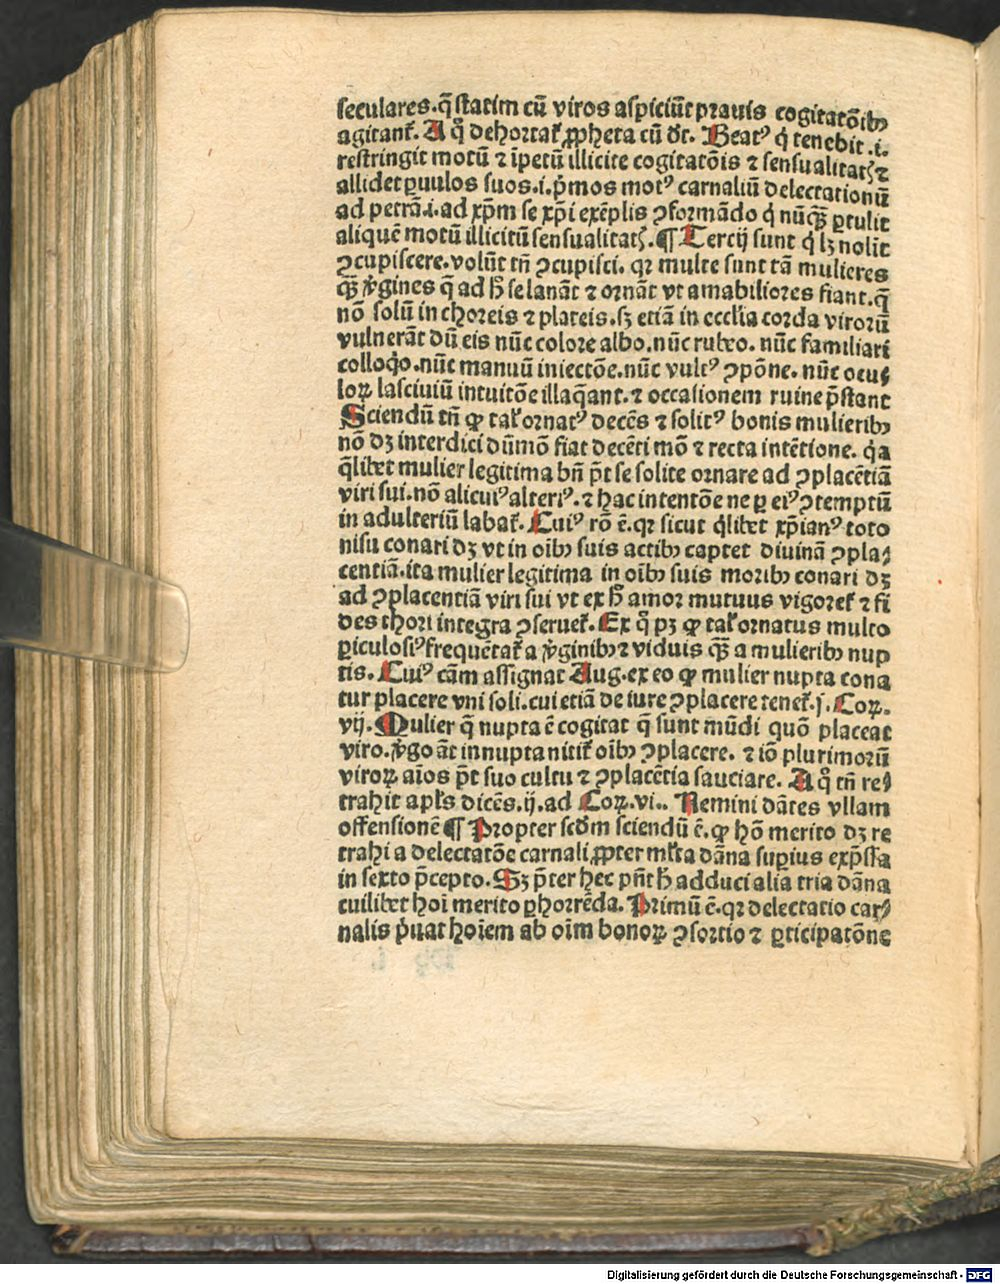 seculares.q̄ statim cū viros aspiciūt prauis cogitatōibꝫ
agitant᷑. A qͦ dehortat᷑ ꝓpheta cū dt̄. Beatꝰ qͥ tenebit .i.
restringit motū ⁊ īpetū illicite cogitatōis ⁊ sensualitatꝭ ⁊
allidet ꝑuulos suos.i.p̄mos motꝰ carnaliū delectationū
ad petrā.i.ad xp̄m se xp̄i exēplis ꝯformādo qͥ nūqꝫ̄ ꝑtulit
aliquē motū illicitū sensualitatꝭ. ¶ Tercij sunt qͥ lꝫ nolīt
ꝯcupiscere.volūt tn̄ ꝯcupisci. qꝛ multe sunt tā mulieres
qꝫ̄ v̓gines q̄ ad h̄ se lanāt ⁊ ornāt vt amabiliores fiant.q̄
nō solū in choreis ⁊ plateis.sꝫ etiā in eccl̓ia corda virorū
vulnerāt dū eis nūc colore albo.nūc rubeo. nūc familiari
colloqͦo.nūc manuū iniectōe.nūc vultꝰ ꝯpōne. nūc ocu⸗
loꝝ lasciuiū intuitōe illaq̄ant.⁊ occasionem ruine p̄stant
Sciendū tn̄ ꝙ tal̓ ornatꝰ decēs ⁊ solitꝰ bonis mulieribꝫ
nō dꝫ interdici dūmō fiat decēti mō ⁊ recta intētione. qͥa
q̄libet mulier legitima bn̄ pt̄ se solite ornare ad ꝯplacētiā
viri sui.nō alicuiꝰ alteriꝰ.⁊ hac intentōe ne ꝑ eiꝰ ꝯtemptū
in adulteriū labat᷑. Cuiꝰ rō ē.qꝛ sicut qͥlibet xp̄ianꝰ toto
nisu conari dꝫ vt in oībꝫ suis actibꝫ captet diuinā ꝯpla⸗
centiā.ita mulier legitima in oībꝫ suis moribꝫ conari dꝫ
ad ꝯplacentiā viri sui vt ex h̄ amor mutuus vigoret᷑ ⁊ fi
des thori integra ꝯseruet᷑. Ex qͦ pꝫ ꝙ tal̓ ornatus multo
ꝑiculosiꝰ frequētat᷑ a v̓ginibꝫ ⁊ viduis qꝫ̄ a mulieribꝫ nup
tis. Cuiꝰ cām assignat Aug.ex eo ꝙ mulier nupta cona
tur placere vni soli.cui etiā de iure ꝯplacere tenet᷑.j. Coꝝ.
vij. Mulier q̄ nupta ē cogitat q̄ sunt mūdi quō placeat
viro.v̓go āt innupta nitit᷑ oībꝫ ꝯplacere. ⁊ iō plurimorū
viroꝝ aīos pt̄ suo cultu ⁊ ꝯplacētia sauciare. A qͦ tn̄ re⸗
trahit apl̓s dicēs.ij.ad Coꝝ.vi.. Nemini dātes vllam
offensionē ¶ Propter scd̓m sciendū ē.ꝙ hō merito dꝫ re
trahi a delectatōe carnali ꝓpter ml̓ta dāna supius exp̄ssa
in sexto p̄cepto. Sꝫ p̄ter hec pn̄t h̄ adduci alia tria dāna
cuilibet hoī merito ꝑhorrēda. Primū ē.qꝛ delectatio car⸗
nalis p̓uat hoīem ab oīm bonoꝝ ꝯsortio ⁊ ꝑticipatōne
Digitalisierung gefördert durch die Deutsche Forschungsgemeinschaft - DFG